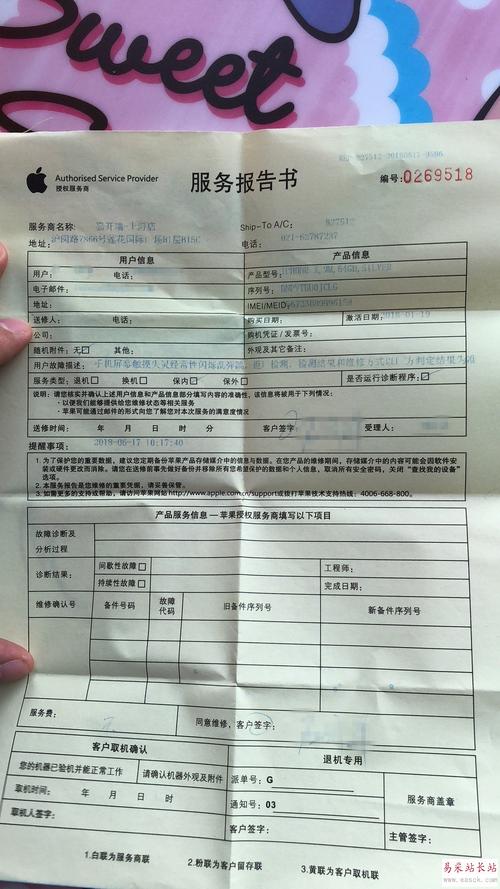 Sweet
Authorised Service Provider
授权服务商
服务报告书
REP 827512-20180617-9596
编号:0269518
服务商名称: Ship-To A/C: 827512
地址: 沪闵路7866号莲花国际广场B1层B15C 电话: 021-62787237
用户信息 产品信息
用户: 电话: 产品型号: IPHONE X, 64GB, SILVER
电子邮件: 序列号:
地址: IMEI/MEID:
送修人: 电话: 购买日期: 激活日期: 2018-01-19
公司: 购买凭证/发票号:
随机附件:无 其他: 外观及其它备注:
用户故障描述: 手机屏幕触摸失灵经常性闪烁乱弹跳, 返厂检测, 检测结果和维修方式以厂方判定结果为准
服务类型:退机 换机 保内 保外 是否运行诊断程序:
说明: 请您核实并确认上述用户信息和产品信息部分填写内容的准确性,该信息将被用于下列情况:
·以便我们能够提供给您维修状态等相关服务
·苹果可能通过邮件的形式向您了解您对本次服务的满意度情况
送修时间: 年 月 日 时 分 客户签字: 受理人:
提醒事项: 2018-06-17 10:17:40
1.为了保护您的重要信息与数据,建议您定期备份苹果产品存储媒介中的信息与数据。在您产品的维修期间,存储媒介中的内容可能会因软件安
装或硬件更改而消除。请您在送修前事先做好备份并移除所有您希望保护的数据和个人信息,取消所有安全密码,关闭“查找我的设备”
选项。
2.本服务报告是您维修的重要凭据,请妥善保管。
3.如需更多的支持或帮助,请访问苹果网站http://www.apple.com/cn/support或拨打苹果技术支持热线: 4006-668-800。
产品服务信息 — 苹果授权服务商填写以下项目
故障诊断及
分析过程
诊断结果: 间歇性故障 工程师:
持续性故障 完成日期:
维修确认号 备件号码 故障代码 旧备件序列号 新备件序列号
服务费: 元 同意维修,客户签字:
客户取机确认 退机专用
您的机器已验机并能正常工作 请确认机器外观及附件 派单号: G
取机时间: 年 月 日 时 通知号: 03 服务商盖章
取机人签字: 客户签字: 主管签字:
1.白联为服务商联 2.粉联为客户留存联 3.黄联为客户取机联
易采站长站
www.easck.com